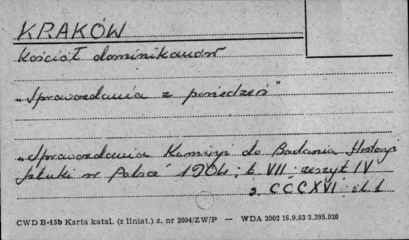 KRAKÓW
Kościół dominikanów
„Sprawozdania z posiedzeń”
„Sprawozdania Komisyi do Badania Historyi
Sztuki w Polsce 1904; t. VII; zeszyt IV
s. CCCXVI; il. 1
CWD B-15b Karta katal. (z liniat.) z. nr 2094/ZW/P — WDA 2002 16.9.63 3.395.020